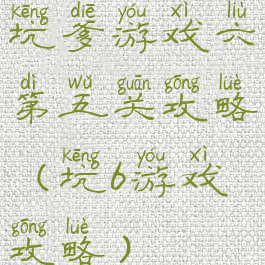 kēng diē yóu xì liù
坑爹游戏六
dì wǔ guān gōng lüè
第五关攻略
kēng yóu xì
(坑6游戏
gōng lüè
攻略)